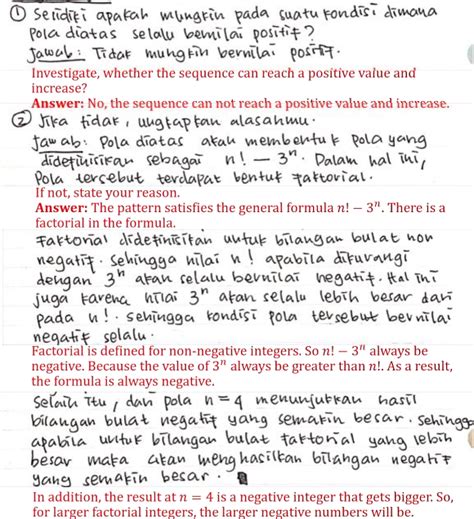 ① Selidiki apakah mungkin pada suatu kondisi dimana
pola diatas selalu bernilai positif?
Jawab : Tidak mungkin bernilai positif.
Investigate, whether the sequence can reach a positive value and
increase?
Answer: No, the sequence can not reach a positive value and increase.
② Jika tidak, ungkapkan alasanmu.
Jawab: Pola diatas akan membentuk pola yang
didefinisikan sebagai n! − 3ⁿ. Dalam hal ini,
pola tersebut terdapat bentuk faktorial.
If not, state your reason.
Answer: The pattern satisfies the general formula n! − 3ⁿ. There is a
factorial in the formula.
Faktorial didefinisikan untuk bilangan bulat non
negatif. Sehingga nilai n! apabila dikurangi
dengan 3ⁿ akan selalu bernilai negatif. Hal ini
juga karena nilai 3ⁿ akan selalu lebih besar dari
pada n!. sehingga kondisi pola tersebut bernilai
negatif selalu.
Factorial is defined for non-negative integers. So n! − 3ⁿ always be
negative. Because the value of 3ⁿ always be greater than n!. As a result,
the formula is always negative.
Selain itu, dari pola n = 4 menunjukkan hasil
bilangan bulat negatif yang semakin besar. Sehingga
apabila untuk bilangan bulat faktorial yang lebih
besar maka akan menghasilkan bilangan negatif
yang semakin besar.
In addition, the result at n = 4 is a negative integer that gets bigger. So,
for larger factorial integers, the larger negative numbers will be.